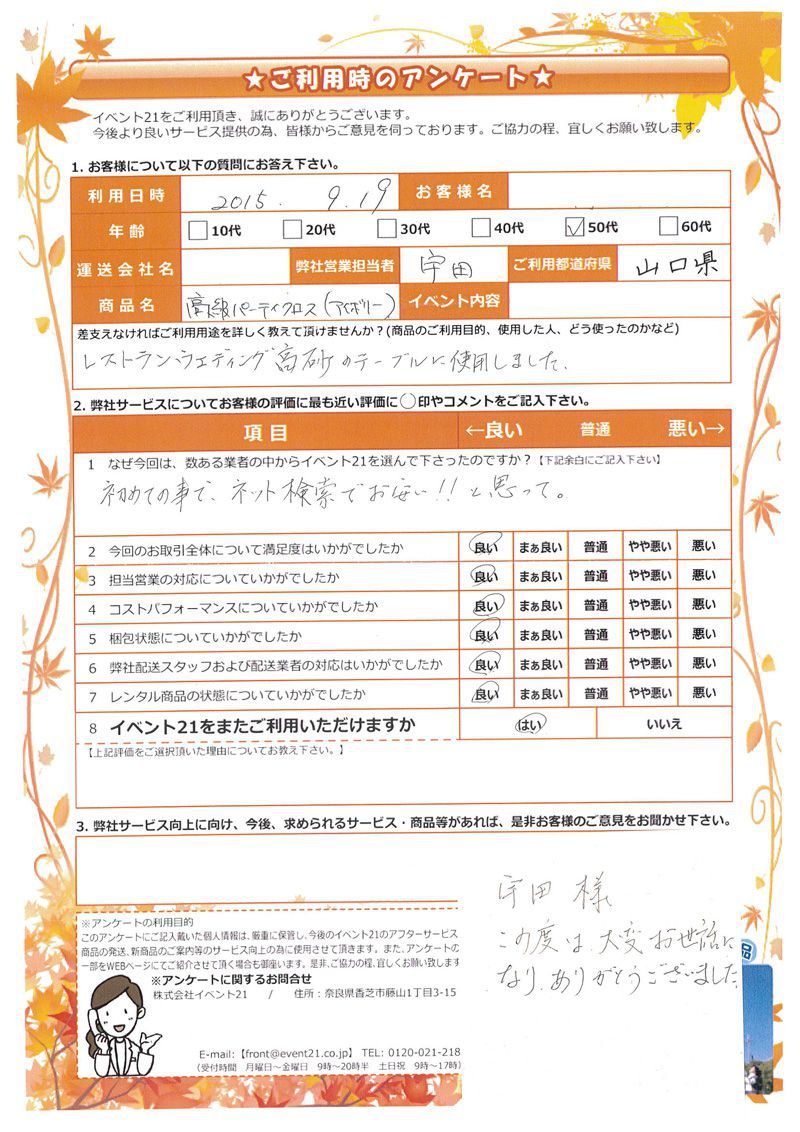 ★ご利用時のアンケート★
イベント21をご利用頂き、誠にありがとうございます。
今後より良いサービス提供の為、皆様からご意見を伺っております。ご協力の程、宜しくお願い致します。
1. お客様について以下の質問にお答え下さい。
利用日時 2015. 9.19 お客様名
年齢 10代 20代 30代 40代 ✓50代 60代
運送会社名 弊社営業担当者 宇田 ご利用都道府県 山口県
商品名 高級パーティクロス(アイボリー) イベント内容
差支えなければご利用用途を詳しく教えて頂けませんか？(商品のご利用目的、使用した人、どう使ったのかなど)
レストランウェディング高砂のテーブルに使用しました。
2. 弊社サービスについてお客様の評価に最も近い評価に◯印やコメントをご記入下さい。
項目 ←良い 普通 悪い→
1 なぜ今回は、数ある業者の中からイベント21を選んで下さったのですか？【下記余白にご記入下さい】
初めての事で、ネット検索でお安い!!と思って。
2 今回のお取引全体について満足度はいかがでしたか 良い まぁ良い 普通 やや悪い 悪い
3 担当営業の対応についていかがでしたか 良い まぁ良い 普通 やや悪い 悪い
4 コストパフォーマンスについていかがでしたか 良い まぁ良い 普通 やや悪い 悪い
5 梱包状態についていかがでしたか 良い まぁ良い 普通 やや悪い 悪い
6 弊社配送スタッフおよび配送業者の対応はいかがでしたか 良い まぁ良い 普通 やや悪い 悪い
7 レンタル商品の状態についていかがでしたか 良い まぁ良い 普通 やや悪い 悪い
8 イベント21をまたご利用いただけますか はい いいえ
【上記評価をご選択頂いた理由についてお教え下さい。】
3. 弊社サービス向上に向け、今後、求められるサービス・商品等があれば、是非お客様のご意見をお聞かせ下さい。
宇田 様
この度は、大変お世話に
なり、ありがとうございました。
品
※アンケートの利用目的
このアンケートにご記入戴いた個人情報は、厳重に保管し、今後のイベント21のアフターサービス
商品の発送、新商品のご案内等のサービス向上の為に使用させて頂きます。また、アンケートの
一部をWEBページにてご紹介させて頂く場合も御座います。是非、ご協力の程、宜しくお願い致します
※アンケートに関するお問合せ
株式会社イベント21 / 住所：奈良県香芝市藤山1丁目3-15
E-mail:【front@event21.co.jp】 TEL: 0120-021-218
(受付時間 月曜日～金曜日 9時～20時半 土日祝 9時～17時)